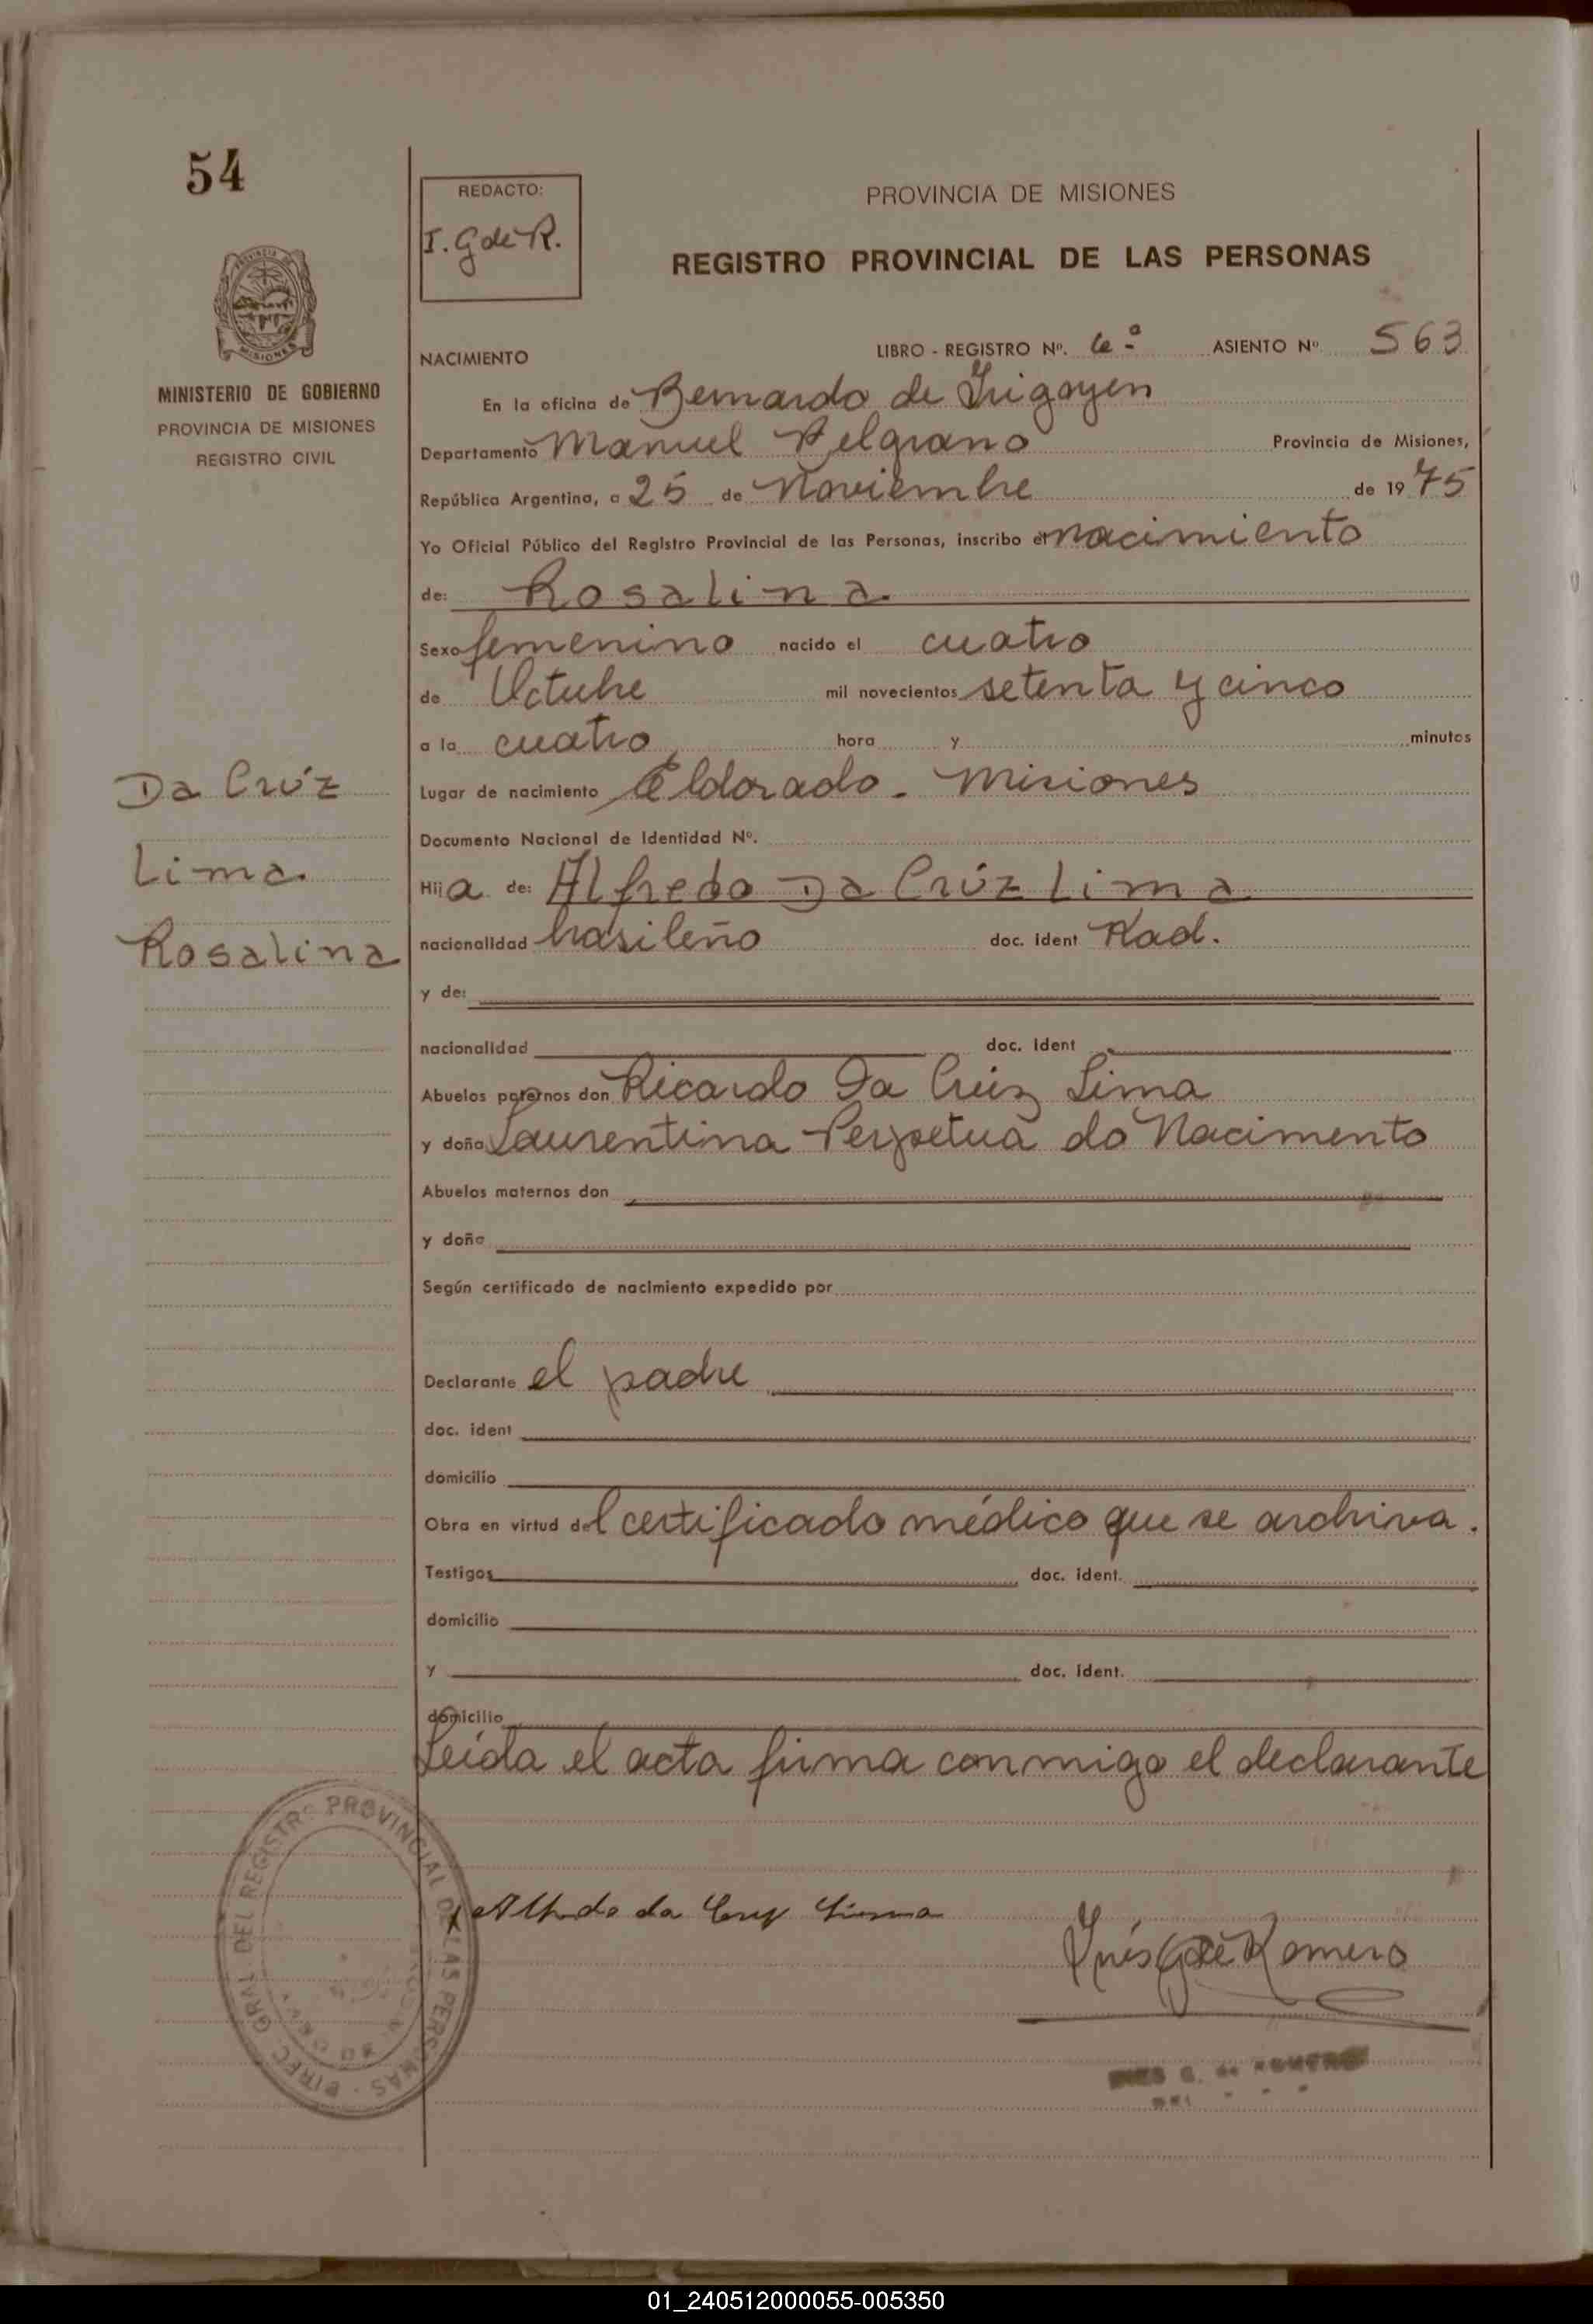 54
REDACTO:
I. G de R.
PROVINCIA DE MISIONES
REGISTRO PROVINCIAL DE LAS PERSONAS
MINISTERIO DE GOBIERNO
PROVINCIA DE MISIONES
REGISTRO CIVIL
NACIMIENTO LIBRO - REGISTRO Nº. ASIENTO Nº 563
En la oficina de Bernardo de Irigoyen
Departamento Manuel Belgrano Provincia de Misiones,
República Argentina, a 25 de Noviembre de 1975
Yo Oficial Público del Registro Provincial de las Personas, inscribo el nacimiento
de: Rosalina
Sexo femenino nacido el cuatro
de Octubre mil novecientos setenta y cinco
a la cuatro hora y minutos
Lugar de nacimiento Eldorado - Misiones
Documento Nacional de Identidad Nº.
Hija de: Alfredo Da Crúz Lima
nacionalidad brasileño doc. ident Rad.
y de:
nacionalidad doc. ident
Abuelos paternos don Ricardo Da Crúz Lima
y doña Laurentina Perpetua do Nacimento
Abuelos maternos don
y doña
Según certificado de nacimiento expedido por
Declarante el padre
doc. ident
domicilio
Obra en virtud del certificado médico que se archiva.
Testigos doc. ident.
domicilio
y doc. ident.
domicilio
Leída el acta firma conmigo el declarante
Da Crúz
Lima
Rosalina
DIREC. GRAL. DEL REGISTRO PROVINCIAL DE LAS PERSONAS
Alfredo da Cruz Lima
Inés G de Romero
INES G. de ROMERO
01_240512000055-005350